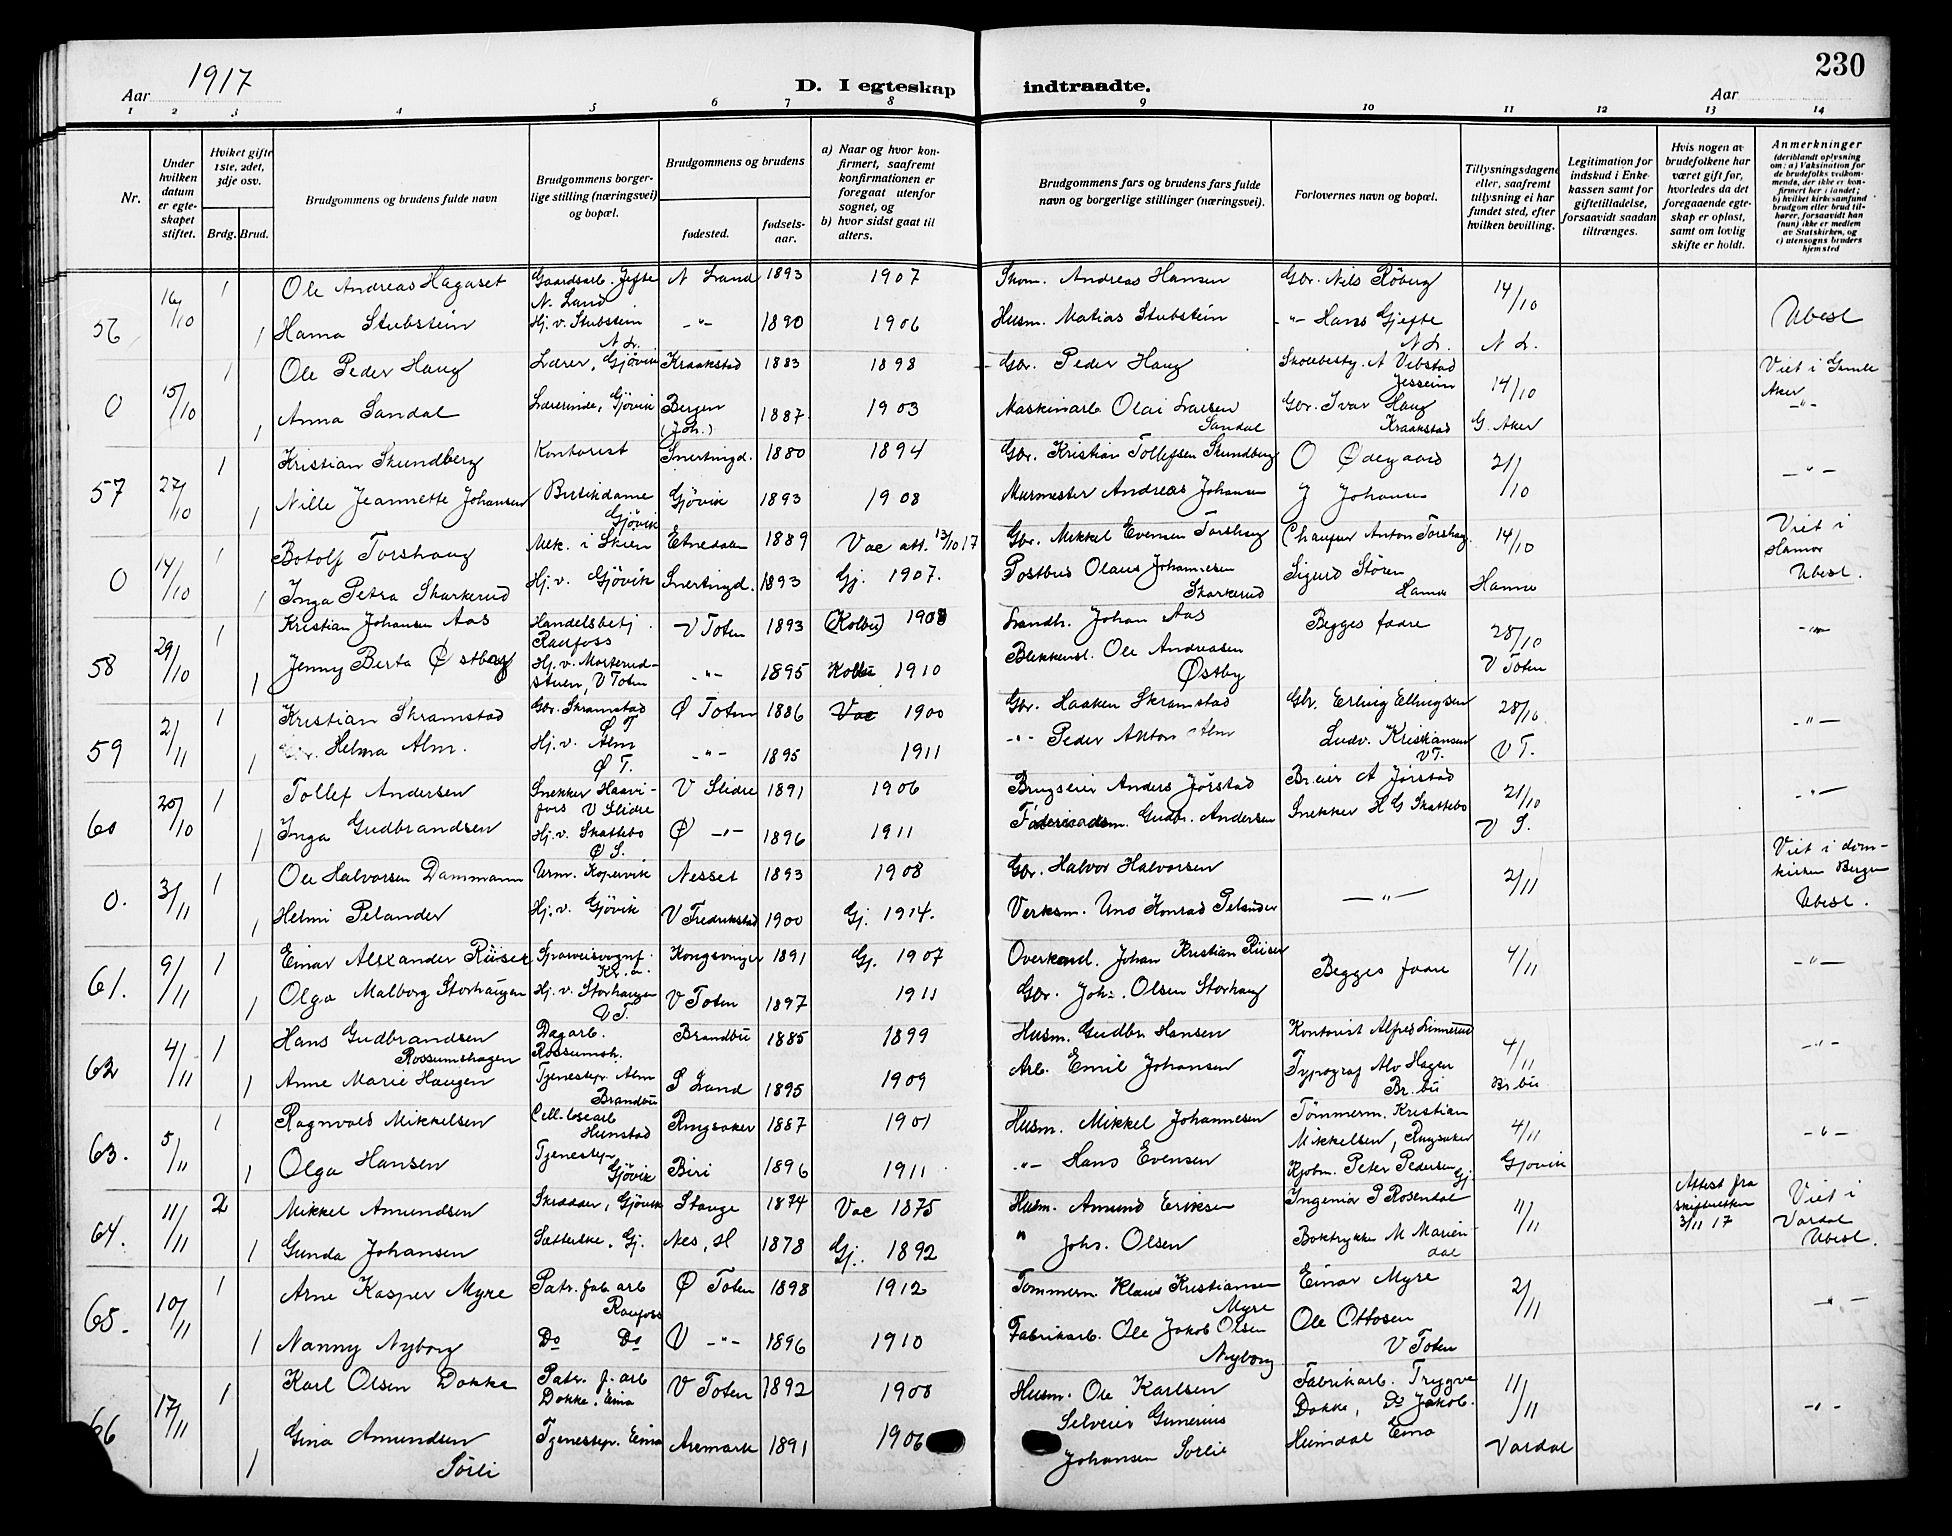 230
Aar 1917
D. I egteskap indtraadte.
Aar
1 2 3 4 5 6 7 8 9 10 11 12 13 14
Nr.
Under hvilken datum er egteskapet stiftet.
Hviket gifte 1ste, 2det, 3dje osv.
Brdg. Brud.
Brudgommens og brudens fulde navn
Brudgommens borgerlige stilling (næringsvei) og bopæl.
Brudgommens og brudens
fødested.
fødselsaar.
a) Naar og hvor konfirmert, saafremt konfirmationen er foregaat utenfor sognet, og
b) hvor sidst gaat til alters.
Brudgommens fars og brudens fars fulde navn og borgerlige stillinger (næringsvei).
Forlovernes navn og bopæl.
Tillysningsdagene eller, saafremt tillysning ei har fundet sted, efter hvilken bevilling.
Legitimation for indskud i Enkekassen samt for giftetilladelse, forsaavidt saadan tiltrænges.
Hvis nogen av brudefolkene har været gift før, hvorledes da det foregaaende egteskap er opløst, samt om lovlig skifte er holdt.
Anmerkninger
(deriblandt oplysning om: a) Vaksination for de brudefolks vedkommende, der ikke er konfirmert her i landet; b) hvilket kirkesamfund brudgom eller brud tilhører, forsaavidt han (hun) ikke er medlem av Statskirken, og c) utensogns bruders hjemsted
56 16/10 1 Ole Andreas Hagaset Gaardsarb. Jefte N. Land N Land 1893 1907 Skom. Andreas Hansen Gbr. Nils Röberg 14/10
1 Hanna Stubstein Hj. v. Stubstein N L. -"- 1890 1906 Husm. Matias Stubstein -"- Hans Gjefte N L. N L. Ubesl
0 15/10 1 Ole Peder Haug Lærer, Gjövik Kraakstad 1883 1898 Gbr. Peder Haug Skolebesty. A Vibstad Jesseim 14/10 Viet i Gamle Aker
1 Anna Sandal Lærerinde, Gjövik Bergen (Joh.) 1887 1903 Maskinarb Olai Larsen Sandal Gbr. Ivar Haug Kraakstad G. Aker -"-
57 27/10 1 Kristian Skundberg Kontorist Snertingd. 1880 1894 Gbr. Kristian Tollefsen Skundberg O Ödegaard 21/10 -"-
1 Nille Jeannette Johansen Butikdame Gjövik Gjövik 1893 1908 Murmester Andreas Johansen J Johansen
0 14/10 1 Botolf Torshaug Mek. i Skien Etnedalen 1889 Vac att. 13/10 17 Gbr. Mikkel Evensen Torshaug Chaufur Anton Torshaug 14/10 Viet i Hamar
1 Inga Petra Skarkerud Hj. v. Gjövik Snertingd. 1893 Gj. 1907. Postbud Olaus Johannesen Skarkerud Sigurd Stören Hamar Hamar Ubesl.
58 29/10 1 Kristian Johansen Aas Handelsbetj. Raufoss V Toten 1893 (Kolbu) 1908 Landh. Johan Aas Begges fædre 28/10 -"-
1 Jenny Berta Østby Hj. v. Morterudstuen, V Toten -"- 1895 Kolbu 1910 Blikkensl. Ole Andreasen Østby V Toten
59 2/11 1 Kristian Skramstad Gbr. Skramstad Ø T Ø Toten 1886 Vac 1900 Gbr. Haaken Skramstad Gbr. Erling Ellingsen 28/10 -"-
1 Helma Alm. Hj. v. Alm Ø T. -"- 1895 1911 -"- Peder Anton Alm Ludv. Kristiansen V T. V T.
60 20/10 1 Tollef Andersen Snekker Haavifors V Slidre V Slidre 1891 1906 Brugseier Anders Jørstad Br.eier A Jørstad 21/10 -"-
1 Inga Gudbrandsen Hj. v. Skattebo Ø S. Ø -"- 1896 1911 Gudbr. Andersen Snekker H G Skattebo V S.
0. 3/11 1 Ole Halvorsen Dammann Urm. Kopervik Nesset 1893 1908 Gbr. Halvor Halvorsen -"- 2/11 Viet i domkirken Bergen
1 Helmi Pelander Hj. v. Gjövik V Fredrikstad 1900 Gj. 1914. Verksm. Uno Konrad Pelander Ubesl.
61. 9/11 1 Einar Alexander Riiser Sporveisvognf. Kr.a. Kongsvinger 1891 Gj. 1907 Overkond. Johan Kristian Riiser Begges fædre 4/11 -"-
1 Olga Malborg Storhaugen Hj. v. Storhaugen V T. V Toten 1897 1911 Gbr. Joh. Olsen Storhaug
62 4/11 1 Hans Gudbrandsen Rossumshagen Dagarb. Rossumsh. Brandbu 1885 1899 Husm. Gudbr. Hansen Kontorist Alfred Linnerud 4/11 -"-
1 Anne Marie Haugen Tjenestep. Alm Brandbu S Land 1895 1909 Arb. Emil Johansen Typograf Alv Hagen Br.bu Br bu
63. 5/11 1 Ragnvald Mikkelsen Cell.losearb Hunstad Ringsaker 1887 1901 Husm. Mikkel Johannesen Tömmerm. Kristian Mikkelsen, Ringsaker 4/11 -"-
1 Olga Hansen Tjenestep. Gjövik Biri 1896 1911 -"- Hans Evensen Kjøbm. Peter Pedersen Gj. Gjøvik
64. 11/11 2 Mikkel Amundsen Skrædder, Gjövik Stange 1874 Vac 1875 Husm. Amund Eriksen Ingeniør P Rosendal 11/11 Attest fra skifteretten 3/11 17 Viet i Vardal
1 Gunda Johansen Sætterske, Gj. Nes, H 1878 Gj. 1892 " Johs. Olsen Boktrykke M Mariendal Ubesl.
65. 10/11 1 Arne Kasper Myre Patr. fab. arb Raufoss Ø Toten 1898 1912 Tømmerm Klaus Kristiansen Myre Einar Myre 2/11 -"-
1 Nanny Nyborg Do Do V -"- 1896 1910 Fabrikarb. Ole Jakob Olsen Nyborg Ole Ottosen V Toten
66 17/11 1 Karl Olsen Dokka Patr. f. arb Dokka, Eina V Toten 1892 1908 Husm. Ole Karlsen Fabrikarb. Trygve Dokka, Do Jakob. 11/11 -"-
1 Gina Amundsen Sörli Tjenestep. Eina Aremark 1891 1906 Selveier Gunerius Johansen Sorlie Heimdal Eina Vardal